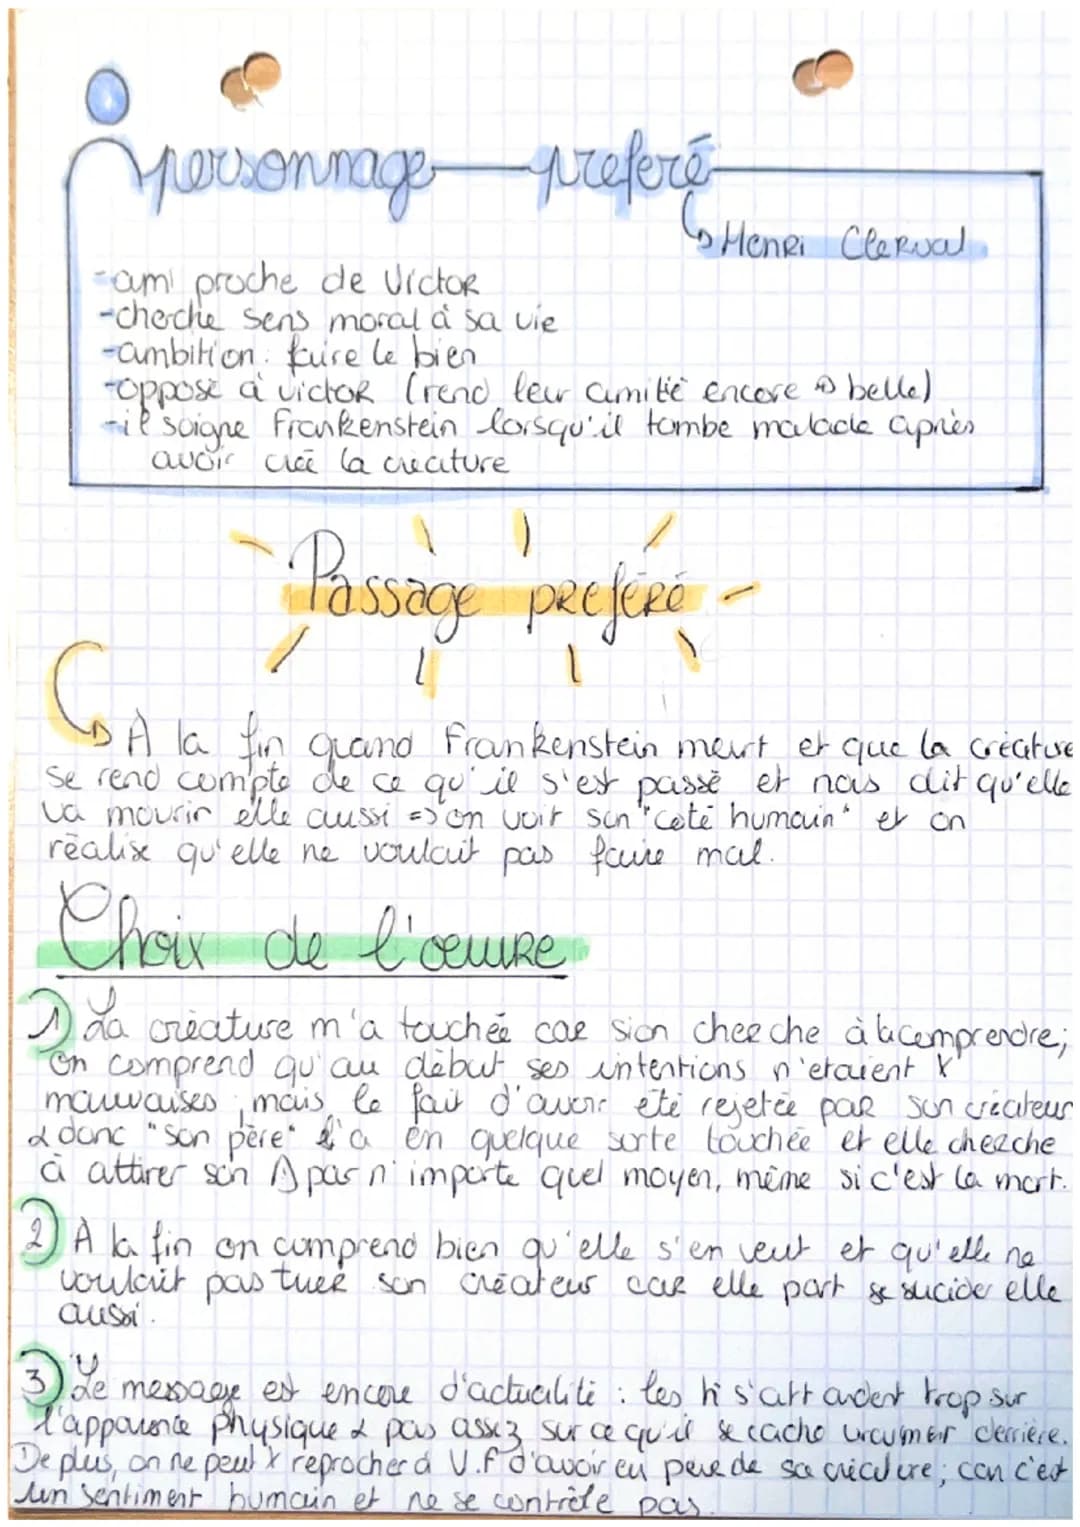 personnage preferé
Henri Clerval
-ami proche de Victor
-cherche sens moral à sa vie
-ambition : faire le bien
-opposé à Victor (rend leur amitié encore + belle)
-il soigne Frankenstein lorsqu'il tombe malade après
avoir créé la créature
Passage préféré
À la fin quand Frankenstein meurt et que la créature
se rend compte de ce qu'il s'est passé et nous dit qu'elle
va mourir elle aussi => on voit son "coté humain" et on
réalise qu'elle ne voulait pas faire mal.
Choix de l'œuvre
1) La créature m'a touchée car si on cherche à la comprendre;
on comprend qu'au début ses intentions n'etaient X
mauvaises, mais le fait d'avoir été rejetée par son créateur
& donc "son père" l'a en quelque sorte touchée et elle cherche
à attirer son par n'importe quel moyen, même si c'est la mort.
2) À la fin on comprend bien qu'elle s'en veut et qu'elle ne
voulait pas tuer son créateur car elle part se sucider elle
aussi.
3) Le message est encore d'actualité : les h s'attardent trop sur
l'apparence physique & pas assez sur ce qu'il se cache vraiment derrière.
De plus, on ne peut X reprocher à V.F d'avoir eu peur de sa créature; car c'est
un sentiment humain et ne se contrôle pas.